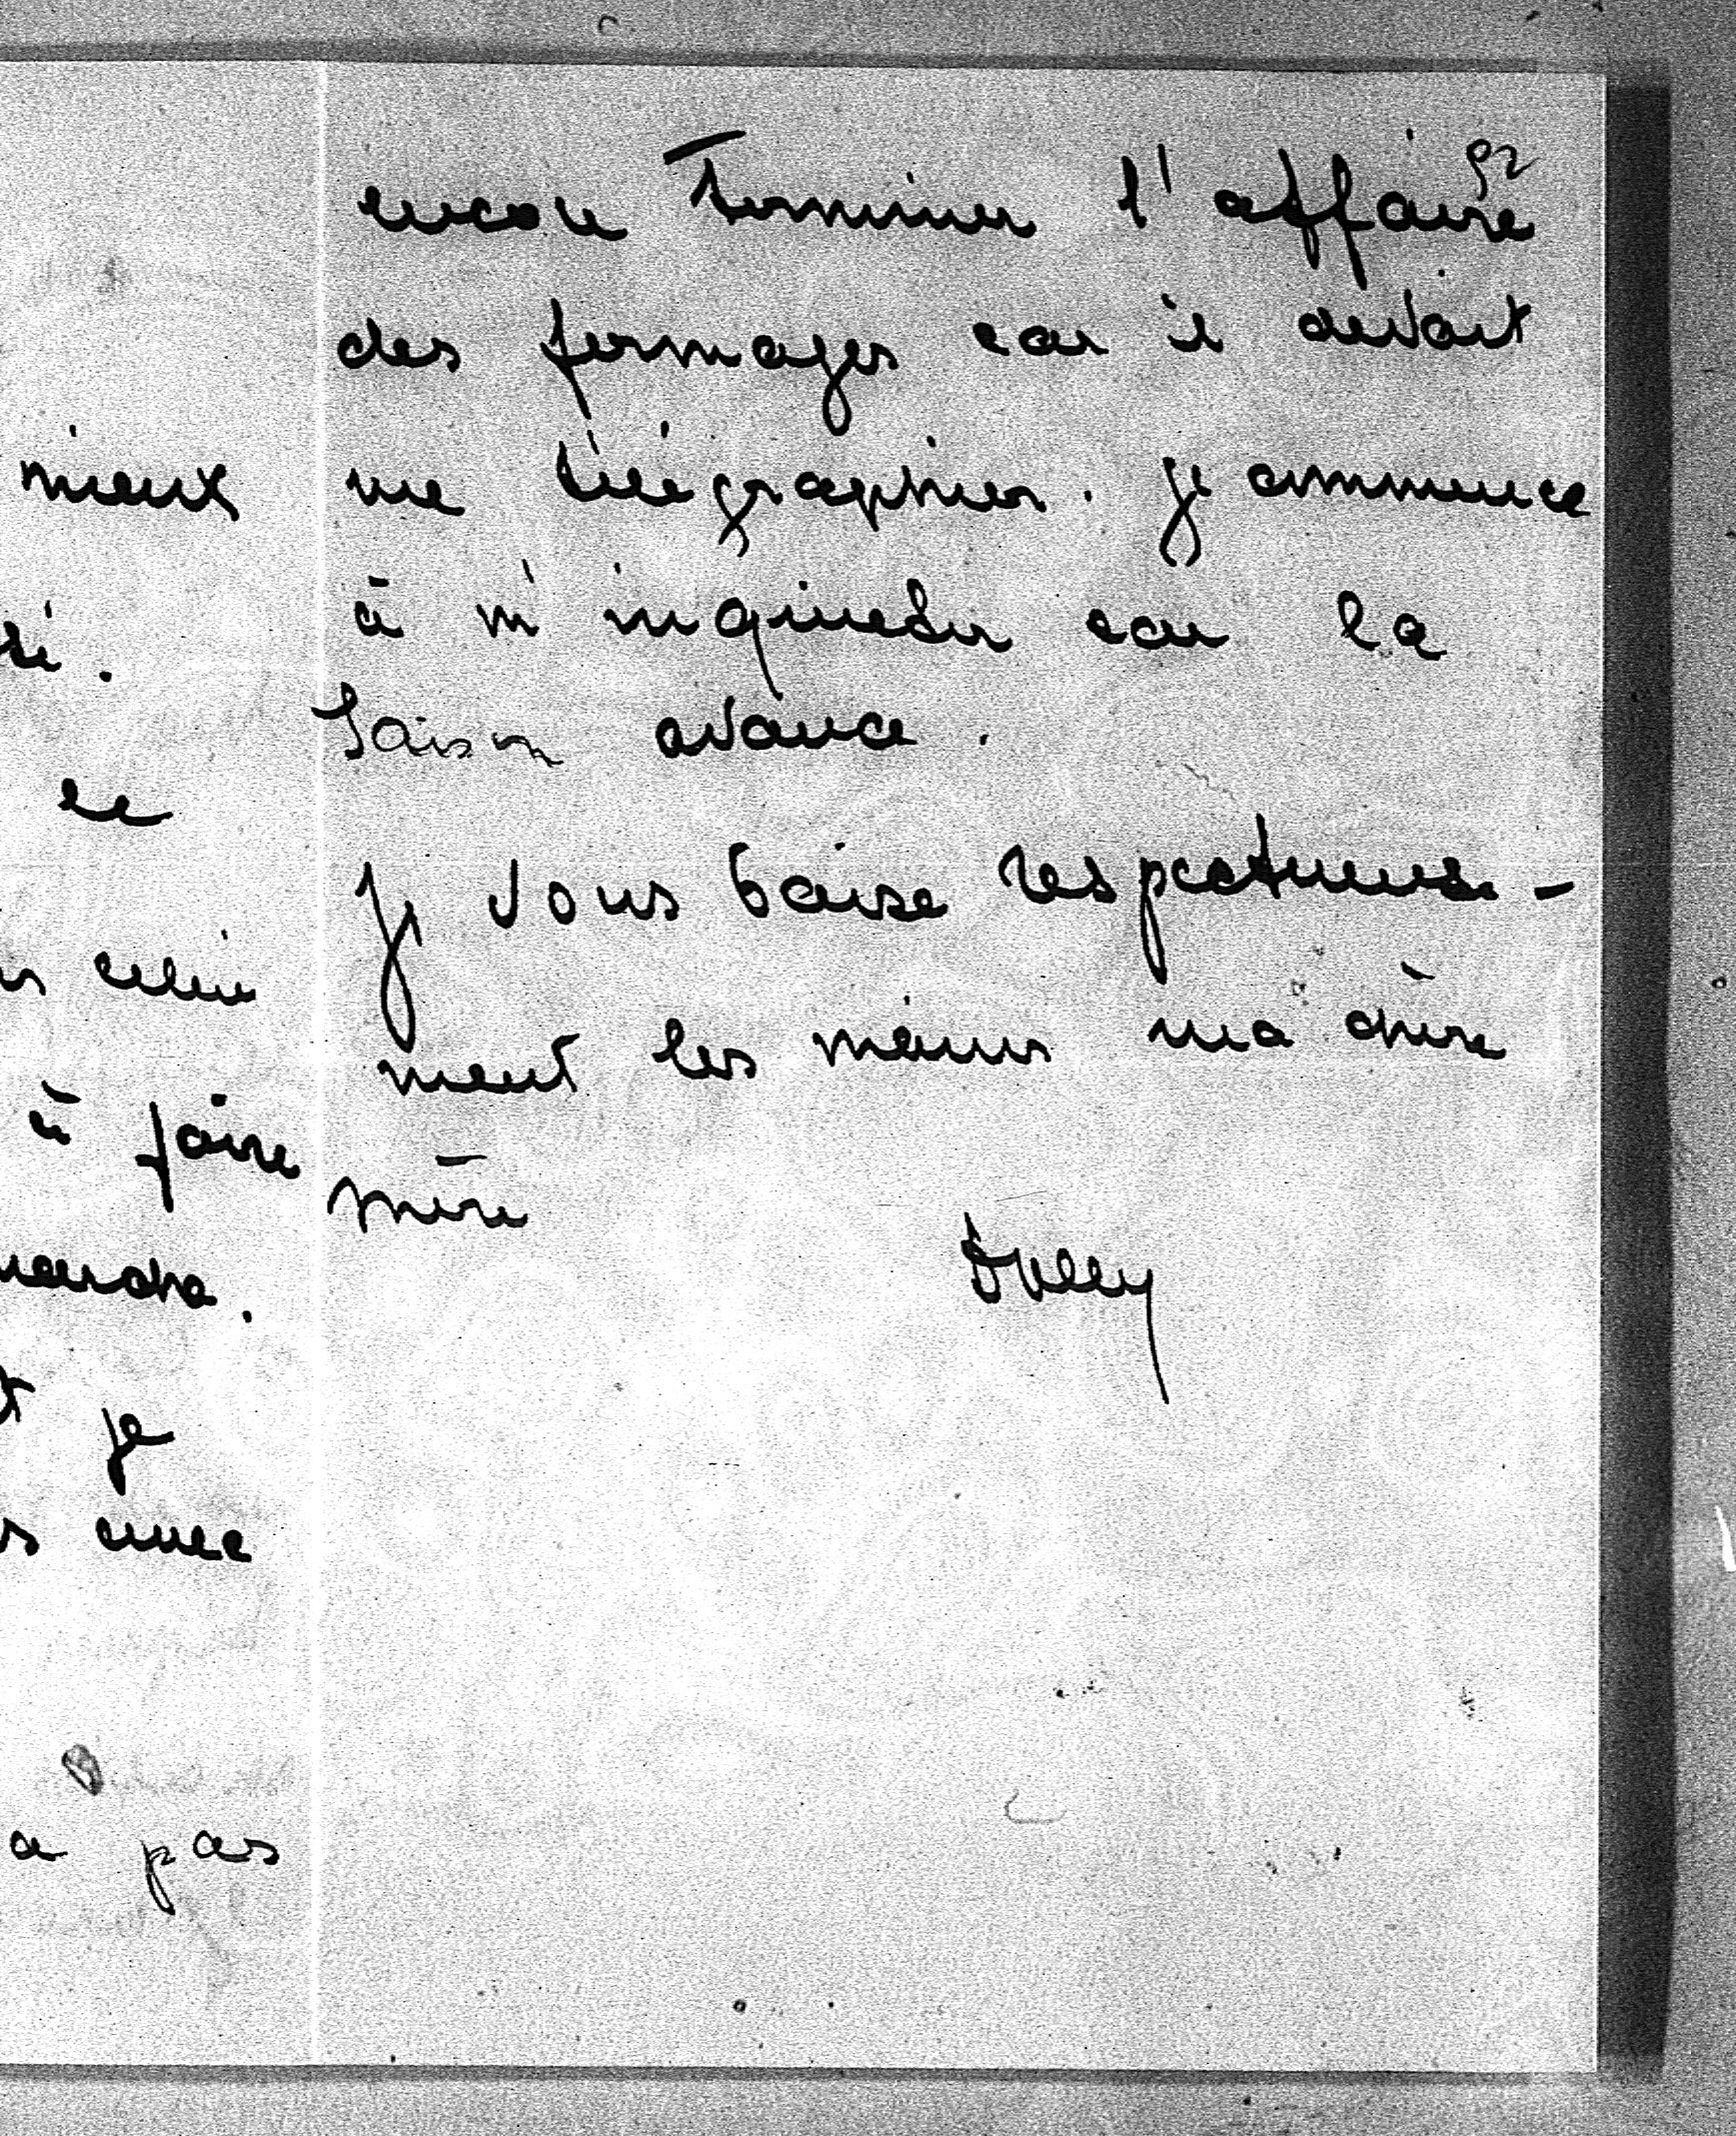 mieux
té.
ce
celui
à faire
je
avec
a pas
92
encore Terminer l'affaire
des fermages car il devait
me télégraphier. Je commence
à m'inquieter car la
Saison avance.
Je vous baise respectueuse-
ment les mains ma chère
mère
Dolly